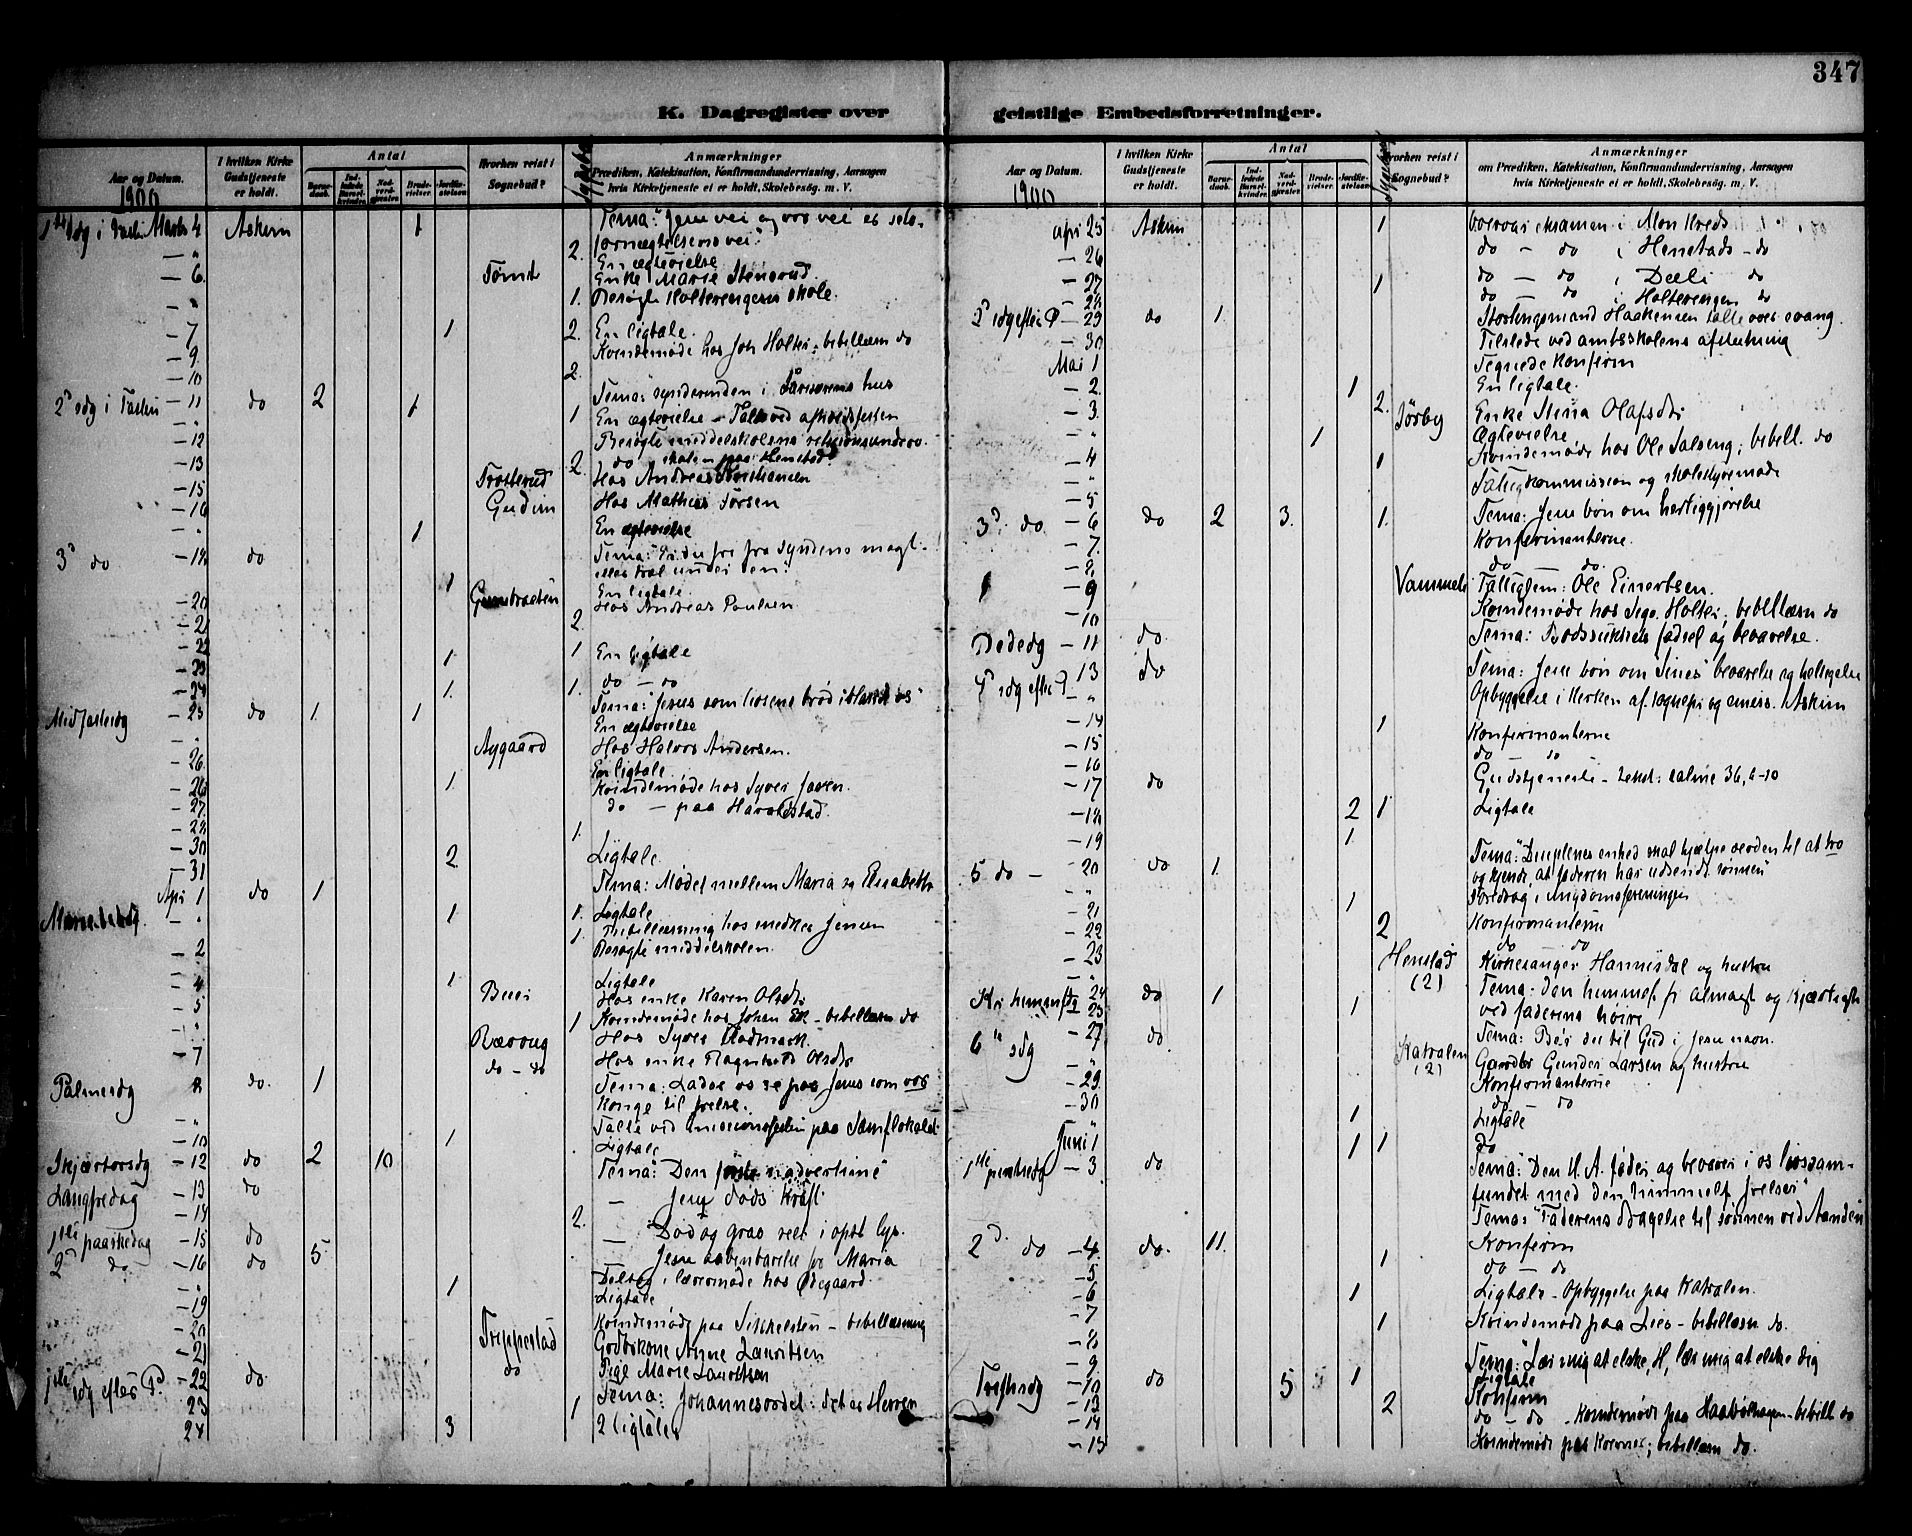 347
K. Dagregister over geistlige Embedsforretninger.
Aar og Datum.
I hvilken Kirke Gudstjeneste er holdt.
Antal
Barnedaab.
Indledede Barselkvinder.
Nadverdgjester.
Brudevielser.
Jordfæstelser.
Hvorhen reist i Sognebud?
Sygebesøg
Anmærkninger
om Prædiken, Katekisation, Konfirmandundervisning, Aarsagen
hvis Kirketjeneste ei er holdt, Skolebesøg. m. V.
1900
1ste sdg i Faste Marts 4 Askim 1 Tema: "Jesu vei og vor vei er selv-
fornægtelsens vei."
— " 2. En ægtevielse
— 6. Tømt Enke Marie Stenerud.
— " 1. Besøgte Holterengens skole.
— 7 1 2. En ligtale.
— 9. Kvindemøde hos Joh Holter. bibellæsn do
— 10 2.
2d sdg i Fasten — 11 do 2 1 Tema: synderinden i Farisæerens hus
— " 1 En ægtevielse — Tale ved afholdsfesten
— 12 Besøgte middelskolens religionsunderv.
— 13 2. do skolen paa Henstad
— 15 Trøtterud Hos Andreas Kristiansen
— 16 Gudim Hos Mathias Torsen
— " 1 En ægtevielse
3d do — 18 do Tema: "Er du fri fra Syndens magt
eller træl under den?"
— 20 1 En ligtale
— 21 Hos Andreas Paulsen
— 22 2.
— 23 1 1 En ligtale
— 24 1. 1. do — do
Midfastesdg — 25 do 1 1 Tema: "Jesus som livsens brød iblandt os"
— " En ægtevielse
— 26. Aygaard Hos Halvor Andersen.
— 26 1 En ligtale.
— 27. Kvindemøde hos Syver
— 28. do — paa Haraldstad.
— 30 1.
— 31 2 Ligtale.
April 1 do 1 Tema: Mødet mellem Maria og Elisabeth
Mariæ bebdg. — " 1 1. Ligtale
1. Bibellæsning hos Jensen
— 2 Besøgte middelskolen.
— 4 1 Ligtale
— 5 Hos enke Karen Olsdtr
— " 1 Kvindemøde hos Johan Eek — bibellæsn do
Rævaug Hos Syver Rødmark.
— 7 do — do Hos enke Ragnhild Olsdtr
Palmesdg 8 do. 1 Tema: Lader os se paa Jesus som vor
Konge til frelse.
— " Talte ved missionsfesten paa Samflokalet
— 10 1 Ligtale
Skjærtorsdg — 12 do 2 10 Tema: "Den første nadvertime"
Langfredag — 13 do — Jesu døds kraft
— 14 2.
1ste paaskedag — 15 do — Død og grav
2d do — 16 do 5 . Jesu aabenbarelse for Maria
— " 1 Deltog i læremøde hos Ødegaard.
— 19 Ligtale
— 20 Kvindemøde paa — bibellæsning
— 21 Trippestad Anne Lauritsen
1ste sdg efter P. — 22 do do Pige Marie Lauritsen
23 1 Tema: Johannesordet: det er Herren
24 3 2 ligtaler
1900
April 25 Askim 1 Vaarexamen i Mon Kreds
— 26 do — do i Henstads — do
— 27 1 do — do i Dæli do
— 28 do — do i Holterengens do
2d sdg efter P — 29 do 1. Stortingsmand Haakensen talte over evang.
— 30 Tilstede ved amtsskolens afslutning
Mai 1 Tegnede konfirm
— 2. 1 En ligtale.
— 3. 2. Sørby Enke Stina Olafsdtr
— " 1 Ægtevielse
— 4 1 Kvindemøde hos Ole Salseng; bibell. do
— " Fattigkommission og skolestyremøde
— 5
3d. do. — 6 do 2 3. 1. Tema: Jesu bøn om herliggjørelse
— 7. Konfirmanterne.
— 8. do — do.
— 9 Fattiglem: Ole Einertsen.
— 10 Kvindemøde hos Holter; bibellæsn do
Bededg — 11 do. Tema: Bodssukkets fødsel og bevarelse.
4d sdg efter P 13 do Tema: Jesu bøn om "sines" bevarelse og helligelse
— " Opbyggelse i kirken af sognepr og emiss. Askim
— 14 1 Konfirmanterne
— 15 do do
— 16 Gudstjeneste — tekst: salme 36, 6—10
— 17 do
— 18 2 1 Ligtale
— 19 1
5 do — 20 do 1. Tema: "Disciplenes enhed skal hjælpe verden til at tro
og kjende, at faderen har udsendt sønnen"
— " Foredrag i Ungdomsforeningen
— 21 1
— 22 2 Konfirmanterne
— 23 do do
— " Henstad (2) Kirkesanger Hannisdal og hustru
Kr. himmelf. dg 24 do 1 Tema: den himmelf. fr. almagt og kjærlighed
25 1 ved faderens høire
6te sdg — 27 do Tema: Bøn til Gud i Jesu navn.
— " Katralen (2) Gaardbr Gunder Larsen og hustru
— 29. Konfirmanterne
— 30 do do
— " 1 Ligtale
Juni 1 1 1 do
1ste pintsedg — 3. do Tema: "Den H. A. føder og bevarer i os livssam-
fundet med den himmelf. frelser"
Tema: "Faderens dragelse til sønnen ved Aanden"
2d. do — 4. do. 11. Konfirm
— 5 1 do — do
— 6 1 Ligtale — Opbyggelse paa Katralen.
— 7 1 Kvindemøde paa Lier — bibellæsn do.
— 8
— 9 Tema: "Lær mig at elske, H, lær mig at elske dig
Trefh.sdg — 10 do 5 1 Ligtale
— 13 2 Konfirm
— 14 do — do . Kvindemøde paa — bibell do
— 15 Kvindemøde paa ; bibellæsn do.